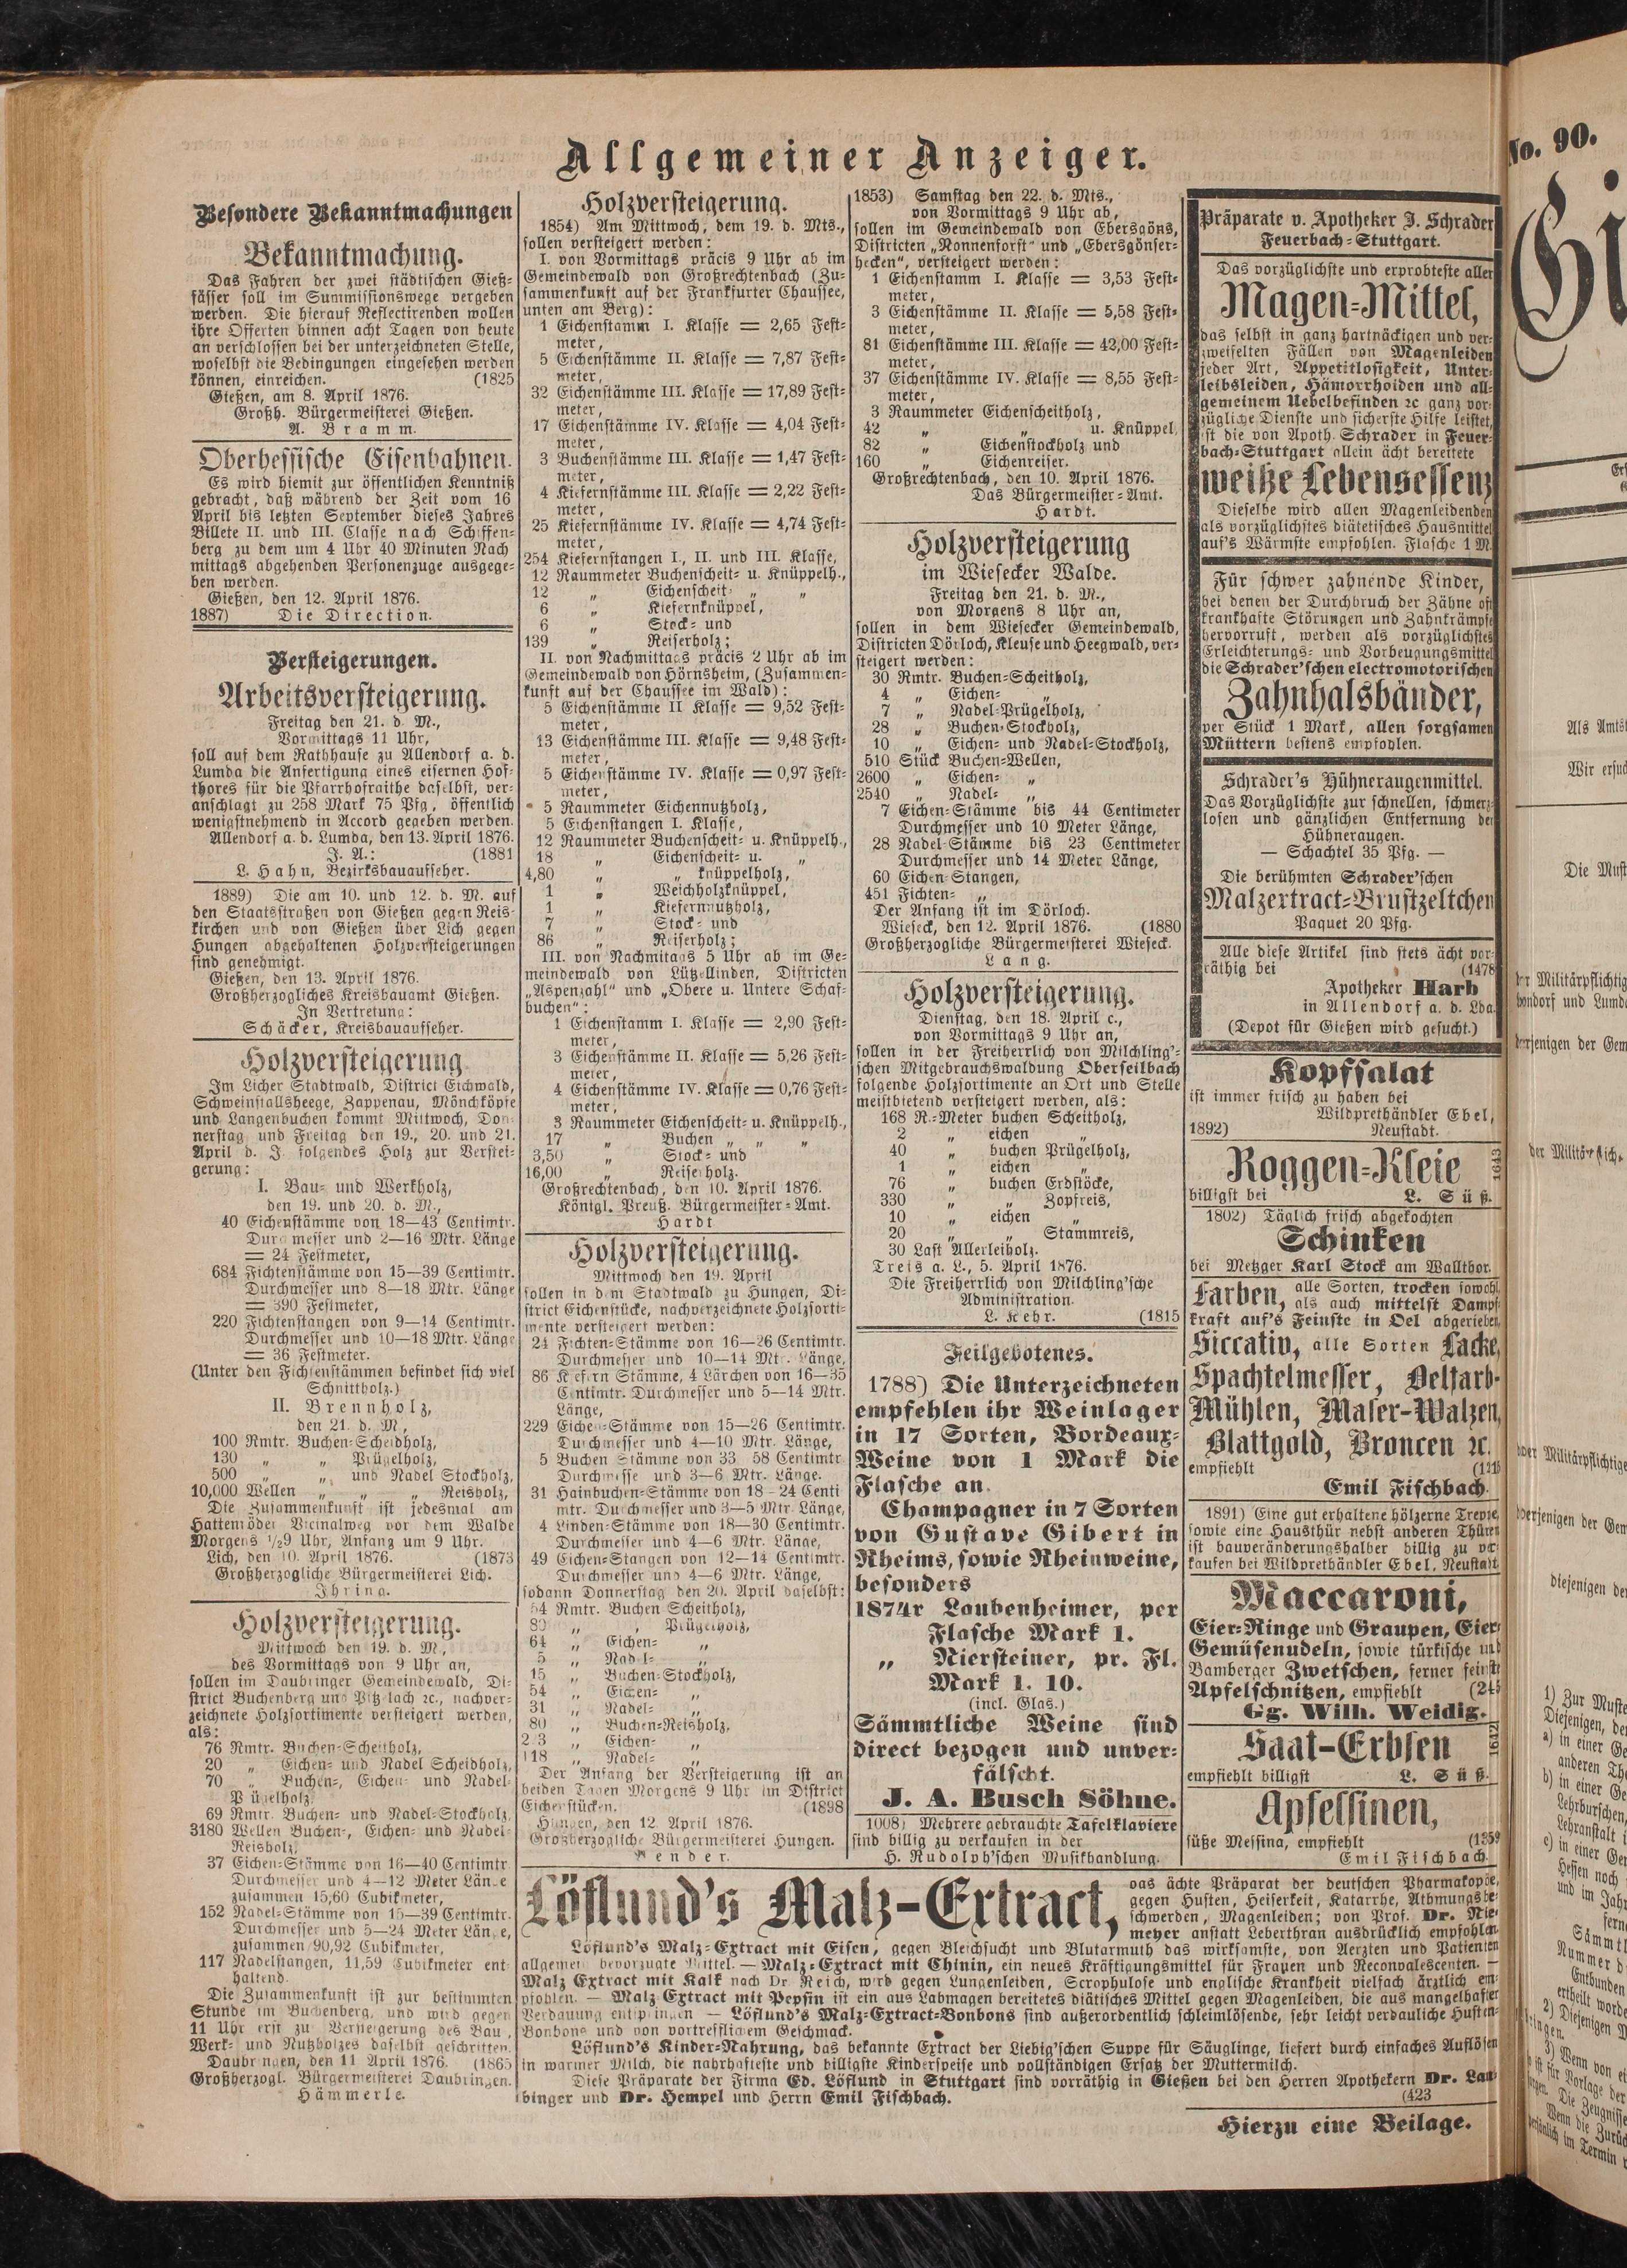 Allgemeiner Anzeiger.
Besondere Bekanntmachungen
Bekanntmachung.
Das Fahren der zwei städtischen Gieß-
fässer soll im Summissionswege vergeben
werden. Die hierauf Reflectirenden wollen
ihre Offerten binnen acht Tagen von heute
an verschlossen bei der unterzeichneten Stelle,
woselbst die Bedingungen eingesehen werden
können, einreichen. (1825
Gießen, am 8. April 1876.
Großh. Bürgermeisterei Gießen.
A. Bramm.
Oberhessische Eisenbahnen.
Es wird hiemit zur öffentlichen Kenntniß
gebracht, daß während der Zeit vom 16
April bis letzten September dieses Jahres
Billete II. und III. Classe nach Schiffen-
berg zu dem um 4 Uhr 40 Minuten Nach
mittags abgehenden Personenzuge ausgege-
ben werden.
Gießen, den 12. April 1876.
1887) Die Direction.
Versteigerungen.
Arbeitsversteigerung.
Freitag den 21. d. M.,
Vormittags 11 Uhr,
soll auf dem Rathhause zu Allendorf a. d.
Lumda die Anfertigung eines eisernen Hof-
thores für die Pfarrhofraithe daselbst, ver-
anschlagt zu 258 Mark 75 Pfg, öffentlich
wenigstnehmend in Accord gegeben werden.
Allendorf a. d. Lumda, den 13. April 1876.
J. A.: (1881
L. Hahn, Bezirksbauaufseher.
1889) Die am 10. und 12. d. M. auf
den Staatsstraßen von Gießen gegen Reis-
kirchen und von Gießen über Lich gegen
Hungen abgehaltenen Holzversteigerungen
sind genehmigt.
Gießen, den 13. April 1876.
Großherzogliches Kreisbauamt Gießen.
In Vertretung:
Schäcker, Kreisbauaufseher.
Holzversteigerung
Im Licher Stadtwald, District Eichwald,
Schweinstallsheege, Zappenau, Mönchköpfe
und Langenbuchen kommt Mittwoch, Don-
nerstag und Freitag den 19., 20. und 21.
April d. J. folgendes Holz zur Verstei-
gerung:
I. Bau- und Werkholz,
den 19. und 20. d. M.,
40 Eichenstämme von 18—43 Centimtr.
Durchmesser und 2—16 Mtr. Länge
= 24 Festmeter,
684 Fichtenstämme von 15—39 Centimtr.
Durchmesser und 8—18 Mtr. Länge
= 390 Festmeter,
220 Fichtenstangen von 9—14 Centimtr.
Durchmesser und 10—18 Mtr. Länge
= 36 Festmeter.
(Unter den Fichtenstämmen befindet sich viel
Schnittholz.)
II. Brennholz,
den 21. d. M,
100 Rmtr. Buchen-Scheidholz,
130 „ „ Prügelholz,
500 „ „ und Nadel Stockholz,
10,000 Wellen „ „ „ Reisholz,
Die Zusammenkunft ist jedesmal am
Hattenröder Vicinalweg vor dem Walde
Morgens ½9 Uhr, Anfang um 9 Uhr.
Lich, den 10. April 1876. (1873
Großherzogliche Bürgermeisterei Lich.
Ihring.
Holzversteigerung.
Mittwoch den 19. d. M.,
des Vormittags von 9 Uhr an,
sollen im Daubringer Gemeindewald, Di-
strict Buchenberg und Pfitzlach ꝛc., nachver-
zeichnete Holzsortimente versteigert werden,
als:
76 Rmtr. Buchen-Scheitholz,
20 „ Eichen- und Nadel Scheidholz,
70 „ Buchen-, Eichen- und Nadel-
Prügelholz,
69 Rmtr. Buchen- und Nadel-Stockholz,
3180 Wellen Buchen-, Eichen- und Nadel-
Reisholz,
37 Eichen-Stämme von 16—40 Centimtr
Durchmesser und 4—12 Meter Länge
zusammen 15,60 Cubikmeter,
152 Nadel-Stämme von 15—39 Centimtr.
Durchmesser und 5—24 Meter Länge,
zusammen 90,92 Cubikmeter,
117 Nadelstangen, 11,59 Cubikmeter ent-
haltend.
Die Zusammenkunft ist zur bestimmten
Stunde im Buchenberg, und wird gegen
11 Uhr erst zu Versteigerung des Bau-,
Werk- und Nutzholzes daselbst geschritten.
Daubringen, den 11 April 1876. (1865
Großherzogl. Bürgermeisterei Daubringen.
Hämmerle.
Holzversteigerung.
1854) Am Mittwoch, dem 19. d. Mts.,
sollen versteigert werden:
I. von Vormittags präcis 9 Uhr ab im
Gemeindewald von Großrechtenbach (Zu-
sammenkunft auf der Frankfurter Chaussee,
unten am Berg):
1 Eichenstamm I. Klasse = 2,65 Fest-
meter,
5 Eichenstämme II. Klasse = 7,87 Fest-
meter,
32 Eichenstämme III. Klasse = 17,89 Fest-
meter,
17 Eichenstämme IV. Klasse = 4,04 Fest-
meter,
3 Buchenstämme III. Klasse = 1,47 Fest-
meter,
4 Kiefernstämme III. Klasse = 2,22 Fest-
meter,
25 Kiefernstämme IV. Klasse = 4,74 Fest-
meter,
254 Kiefernstangen I., II. und III. Klasse,
12 Raummeter Buchenscheit- u. Knüppelh.,
12 „ Eichenscheit- „ „
6 „ Kiefernknüppel,
6 „ Stock- und
139 „ Reiserholz;
II. von Nachmittags präcis 2 Uhr ab im
Gemeindewald von Hörnsheim, (Zusammen-
kunft auf der Chaussee im Wald):
5 Eichenstämme II Klasse = 9,52 Fest-
meter,
13 Eichenstämme III. Klasse = 9,48 Fest-
meter,
5 Eichenstämme IV. Klasse = 0,97 Fest-
meter,
5 Raummeter Eichennutzholz,
5 Eichenstangen I. Klasse,
12 Raummeter Buchenscheit- u. Knüppelh.,
18 „ Eichenscheit- u. „
4,80 „ „ knüppelholz,
1 „ Weichholzknüppel,
1 „ Kiefernnutzholz,
7 „ Stock- und
86 „ Reiserholz;
III. von Nachmitags 5 Uhr ab im Ge-
meindewald von Lützellinden, Districten
„Aspenzahl“ und „Obere u. Untere Schaf-
buchen“:
1 Eichenstamm I. Klasse = 2,90 Fest-
meter,
3 Eichenstämme II. Klasse = 5,26 Fest-
meter,
4 Eichenstämme IV. Klasse = 0,76 Fest-
meter,
3 Raummeter Eichenscheit- u. Knüppelh.,
17 „ Buchen „ „ „
3,50 „ Stock- und
16,00 „ Reiserholz.
Großrechtenbach, den 10. April 1876.
Königl. Preuß. Bürgermeister-Amt.
Hardt
Holzversteigerung.
Mittwoch den 19. April
sollen in dem Stadtwald zu Hungen, Di-
strict Eichenstücke, nachverzeichnete Holzsorti-
mente versteigert werden:
24 Fichten-Stämme von 16—26 Centimtr.
Durchmesser und 10—14 Mtr. Länge,
86 Kiefern Stämme, 4 Lärchen von 16—35
Centimtr. Durchmesser und 5—14 Mtr.
Länge,
229 Eichen-Stämme von 15—26 Centimtr.
Durchmesser und 4—10 Mtr. Länge,
5 Buchen Stämme von 33 58 Centimtr
Durchmesse und 3—6 Mtr. Länge.
31 Hainbuchen-Stämme von 18-24 Centi
mtr. Durchmesser und 3—5 Mtr. Länge,
4 Linden-Stämme von 18—30 Centimtr.
Durchmesser und 4—6 Mtr. Länge,
49 Eichen-Stangen von 12—14 Centimtr.
Durchmesser und 4—6 Mtr. Länge,
sodann Donnerstag den 20. April daselbst:
54 Rmtr. Buchen Scheitholz,
80 „ „ Prügelholz,
64 „ Eichen- „
5 „ Nadel- „
15 „ Buchen-Stockholz,
54 „ Eichen- „
31 „ Nadel- „
80 „ Buchen-Reisholz,
2 3 „ Eichen- „
118 „ Nadel- „
Der Anfang der Versteigerung ist an
beiden Tagen Morgens 9 Uhr im District
Eichenstücken. (1898
Hungen, den 12. April 1876.
Großherzogliche Bürgermeisterei Hungen.
Wender.
1853) Samstag den 22. d. Mts.,
von Vormittags 9 Uhr ab,
sollen im Gemeindewald von Ebersgöns,
Districten „Nonnenforst“ und „Ebersgönser-
hecken“, versteigert werden:
1 Eichenstamm I. Klasse = 3,53 Fest-
meter,
3 Eichenstämme II. Klasse = 5,58 Fest-
meter,
81 Eichenstämme III. Klasse = 42,00 Fest-
meter,
37 Eichenstämme IV. Klasse = 8,55 Fest-
meter,
3 Raummeter Eichenscheitholz,
42 „ „ u. Knüppel,
82 „ Eichenstockholz und
160 „ Eichenreiser.
Großrechtenbach, den 10. April 1876.
Das Bürgermeister-Amt.
Hardt.
Holzversteigerung
im Wiesecker Walde.
Freitag den 21. d. M.,
von Morgens 8 Uhr an,
sollen in dem Wiesecker Gemeindewald,
Districten Dörloch, Kleuse und Heegwald, ver-
steigert werden:
30 Rmtr. Buchen-Scheitholz,
4 „ Eichen- „
7 „ Nadel-Prügelholz,
28 „ Buchen-Stockholz,
10 „ Eichen- und Nadel-Stockholz,
510 Stück Buchen-Wellen,
2600 „ Eichen- „
2540 „ Nadel- „
7 Eichen-Stämme bis 44 Centimeter
Durchmesser und 10 Meter Länge,
28 Nadel-Stämme bis 23 Centimeter
Durchmesser und 14 Meter Länge,
60 Eichen-Stangen,
451 Fichten- „
Der Anfang ist im Dörloch.
Wieseck, den 12. April 1876. (1880
Großherzogliche Bürgermeisterei Wieseck.
Lang.
Holzversteigerung.
Dienstag, den 18. April c.,
von Vormittags 9 Uhr an,
sollen in der Freiherrlich von Milchling'-
schen Mitgebrauchswaldung Oberseilbach
folgende Holzsortimente an Ort und Stelle
meistbietend versteigert werden, als:
168 R.-Meter buchen Scheitholz,
2 „ eichen „
40 „ buchen Prügelholz,
1 „ eichen „
76 „ buchen Erdstöcke,
330 „ „ Zopfreis,
10 „ eichen „
20 „ „ Stammreis,
30 Last Allerleiholz.
Treis a. L., 5. April 1876.
Die Freiherrlich von Milchling'sche
Administration.
L. Kehr. (1815
Feilgebotenes.
1788) Die Unterzeichneten
empfehlen ihr Weinlager
in 17 Sorten, Bordeaux-
Weine von 1 Mark die
Flasche an.
Champagner in 7 Sorten
von Gustave Gibert in
Rheims, sowie Rheinweine,
besonders
1874r Laubenheimer, per
Flasche Mark 1.
„ Niersteiner, pr. Fl.
Mark 1. 10.
(incl. Glas.)
Sämmtliche Weine sind
direct bezogen und unver-
fälscht.
J. A. Busch Söhne.
1008) Mehrere gebrauchte Tafelklaviere
sind billig zu verkaufen in der
H. Rudolph'schen Musikhandlung.
Präparate v. Apotheker J. Schrader
Feuerbach-Stuttgart.
Das vorzüglichste und erprobteste aller
Magen-Mittel,
das selbst in ganz hartnäckigen und ver-
zweifelten Fällen von Magenleiden
jeder Art, Appetitlosigkeit, Unter-
leibsleiden, Hämorrhoiden und all-
gemeinem Uebelbefinden ꝛc ganz vor-
zügliche Dienste und sicherste Hilfe leistet,
ist die von Apoth. Schrader in Feuer-
bach-Stuttgart allein ächt bereitete
weiße Lebensessenz
Dieselbe wird allen Magenleidenden
als vorzüglichstes diätetisches Hausmittel
auf's Wärmste empfohlen. Flasche 1 M.
Für schwer zahnende Kinder,
bei denen der Durchbruch der Zähne oft
krankhafte Störungen und Zahnkrämpfe
hervorruft, werden als vorzüglichstes
Erleichterungs- und Vorbeugungsmittel
die Schrader'schen electromotorischen
Zahnhalsbänder,
per Stück 1 Mark, allen sorgsamen
Müttern bestens empfohlen.
Schrader's Hühneraugenmittel.
Das Vorzüglichste zur schnellen, schmerz-
losen und gänzlichen Entfernung der
Hühneraugen.
— Schachtel 35 Pfg. —
Die berühmten Schrader'schen
Malzertract-Brustzeltchen
Paquet 20 Pfg.
Alle diese Artikel sind stets ächt vor-
räthig bei (1478
Apotheker Harb
in Allendorf a. d. Lda.
(Depot für Gießen wird gesucht.)
Kopfsalat
ist immer frisch zu haben bei
Wildprethändler Ebel,
1892) Neustadt.
Roggen-Kleie
1643
billigst bei L. Süß.
1802) Täglich frisch abgekochten
Schinken
bei Metzger Karl Stock am Wallthor.
Farben, alle Sorten, trocken sowohl
als auch mittelst Dampf-
kraft auf's Feinste in Oel abgerieben,
Siccativ, alle Sorten Lacke,
Spachtelmesser, Oelfarb-
Mühlen, Maser-Walzen,
Blattgold, Broncen ꝛc.
empfiehlt
Emil Fischbach.
1891) Eine gut erhaltene hölzerne Treppe,
sowie eine Hausthür nebst anderen Thüren
ist bauveränderungshalber billig zu ver-
kaufen bei Wildprethändler Ebel, Neustadt.
Maccaroni,
Eier-Ringe und Graupen, Eier-
Gemüsenudeln, sowie türkische und
Bamberger Zwetschen, ferner feinste
Apfelschnitzen, empfiehlt (245
Gg. Wilh. Weidig.
Saat-Erbsen
1642
empfiehlt billigst L. Süß.
Apfelsinen,
süße Messina, empfiehlt (1359
Emil Fischbach.
Löflund's Malz-Extract,
das ächte Präparat der deutschen Pharmakopöe,
gegen Husten, Heiserkeit, Katarrhe, Athmungsbe-
schwerden, Magenleiden; von Prof. Dr. Nie-
meyer anstatt Leberthran ausdrücklich empfohlen
Löflund's Malz-Extract mit Eisen, gegen Bleichsucht und Blutarmuth das wirksamste, von Aerzten und Patienten
allgemein bevorzugte Mittel. — Malz-Extract mit Chinin, ein neues Kräftigungsmittel für Frauen und Reconvalescenten. —
Malz Extract mit Kalk nach Dr. Reich, wird gegen Lungenleiden, Scrophulose und englische Krankheit vielfach ärztlich em-
pfohlen. — Malz Extract mit Pepsin ist ein aus Labmagen bereitetes diätisches Mittel gegen Magenleiden, die aus mangelhafter
Verdauung entspringen — Löflund's Malz-Extract-Bonbons sind außerordentlich schleimlösende, sehr leicht verdauliche Husten-
Bonbons und von vortrefflichem Geschmack.
Löflund's Kinder-Nahrung, das bekannte Extract der Liebig'schen Suppe für Säuglinge, liefert durch einfaches Auflösen
in warmer Milch, die nahrhafteste und billigste Kinderspeise und vollständigen Ersatz der Muttermilch.
Diese Präparate der Firma Ed. Löflund in Stuttgart sind vorräthig in Gießen bei den Herren Apothekern Dr. Lau-
binger und Dr. Hempel und Herrn Emil Fischbach. (423
Hierzu eine Beilage.
No. 90.
Gi
Als Amts
Wir ersuc
Die Must
der Militärpflichtig
bondorf und Lumda
derjenigen der Gem
der Militär
oder Militärpflichtige
derjenigen der Gem
diejenigen der
1) Zur Muste
Diejenigen, de
a) in einer Ge
anderen Th
b) in einer Ge
Lehrburschen,
Lehranstalt i
c) in einer Ge
Hessen noch
und im Jahr
fern
Sämmtl
Nummer d
Entbunden
ertheilt worde
2) Diejenigen M
bringen.
3) Wenn von ei
für Vorlage der
Die Zeugnisse
Wenn die Zurüc
persönlich im Termin